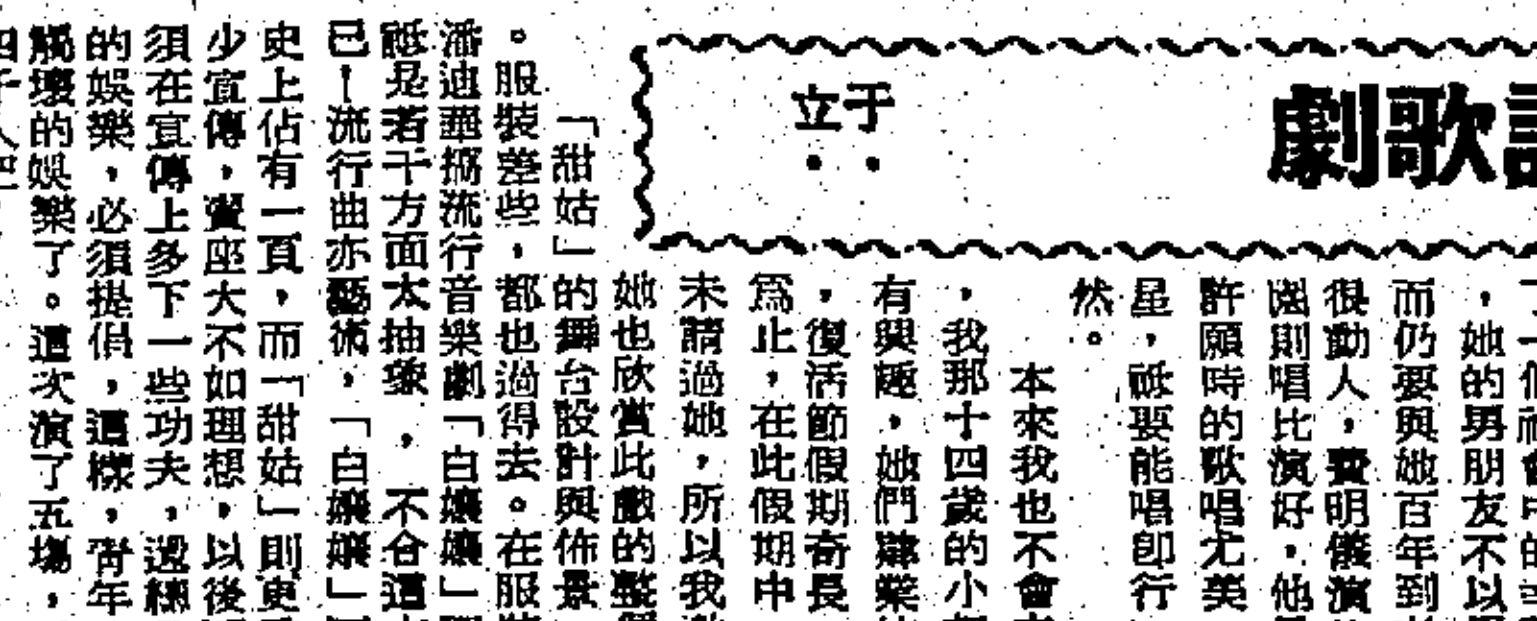 歌劇
于立
，她的男朋友不以
而仍要與她百年到
很動人，費明儀演
則唱比演好，他
許願時的歌唱尤美
星，祇要能唱即行
然。
本來我也不會
，我那十四歲的小
有興趣，她們肄業
，復活節假期奇長
為止，在此假期中
未請過她，所以我
她也欣賞此戲的整
「甜姑」的舞台設計與佈景
。服裝差些，都也過得去。在服
潘迪華搞流行音樂劇「白孃孃」
祇是若干方面太抽象，不合這
已！流行曲亦藝術，「白孃孃」
史上佔有一頁，而「甜姑」則更
少宣傳，賣座大不如理想，以後
須在宣傳上多下一些功夫，
的娛樂，必須提倡，這樣，青年
觸壞的娛樂了。這次演了五場，
四千人